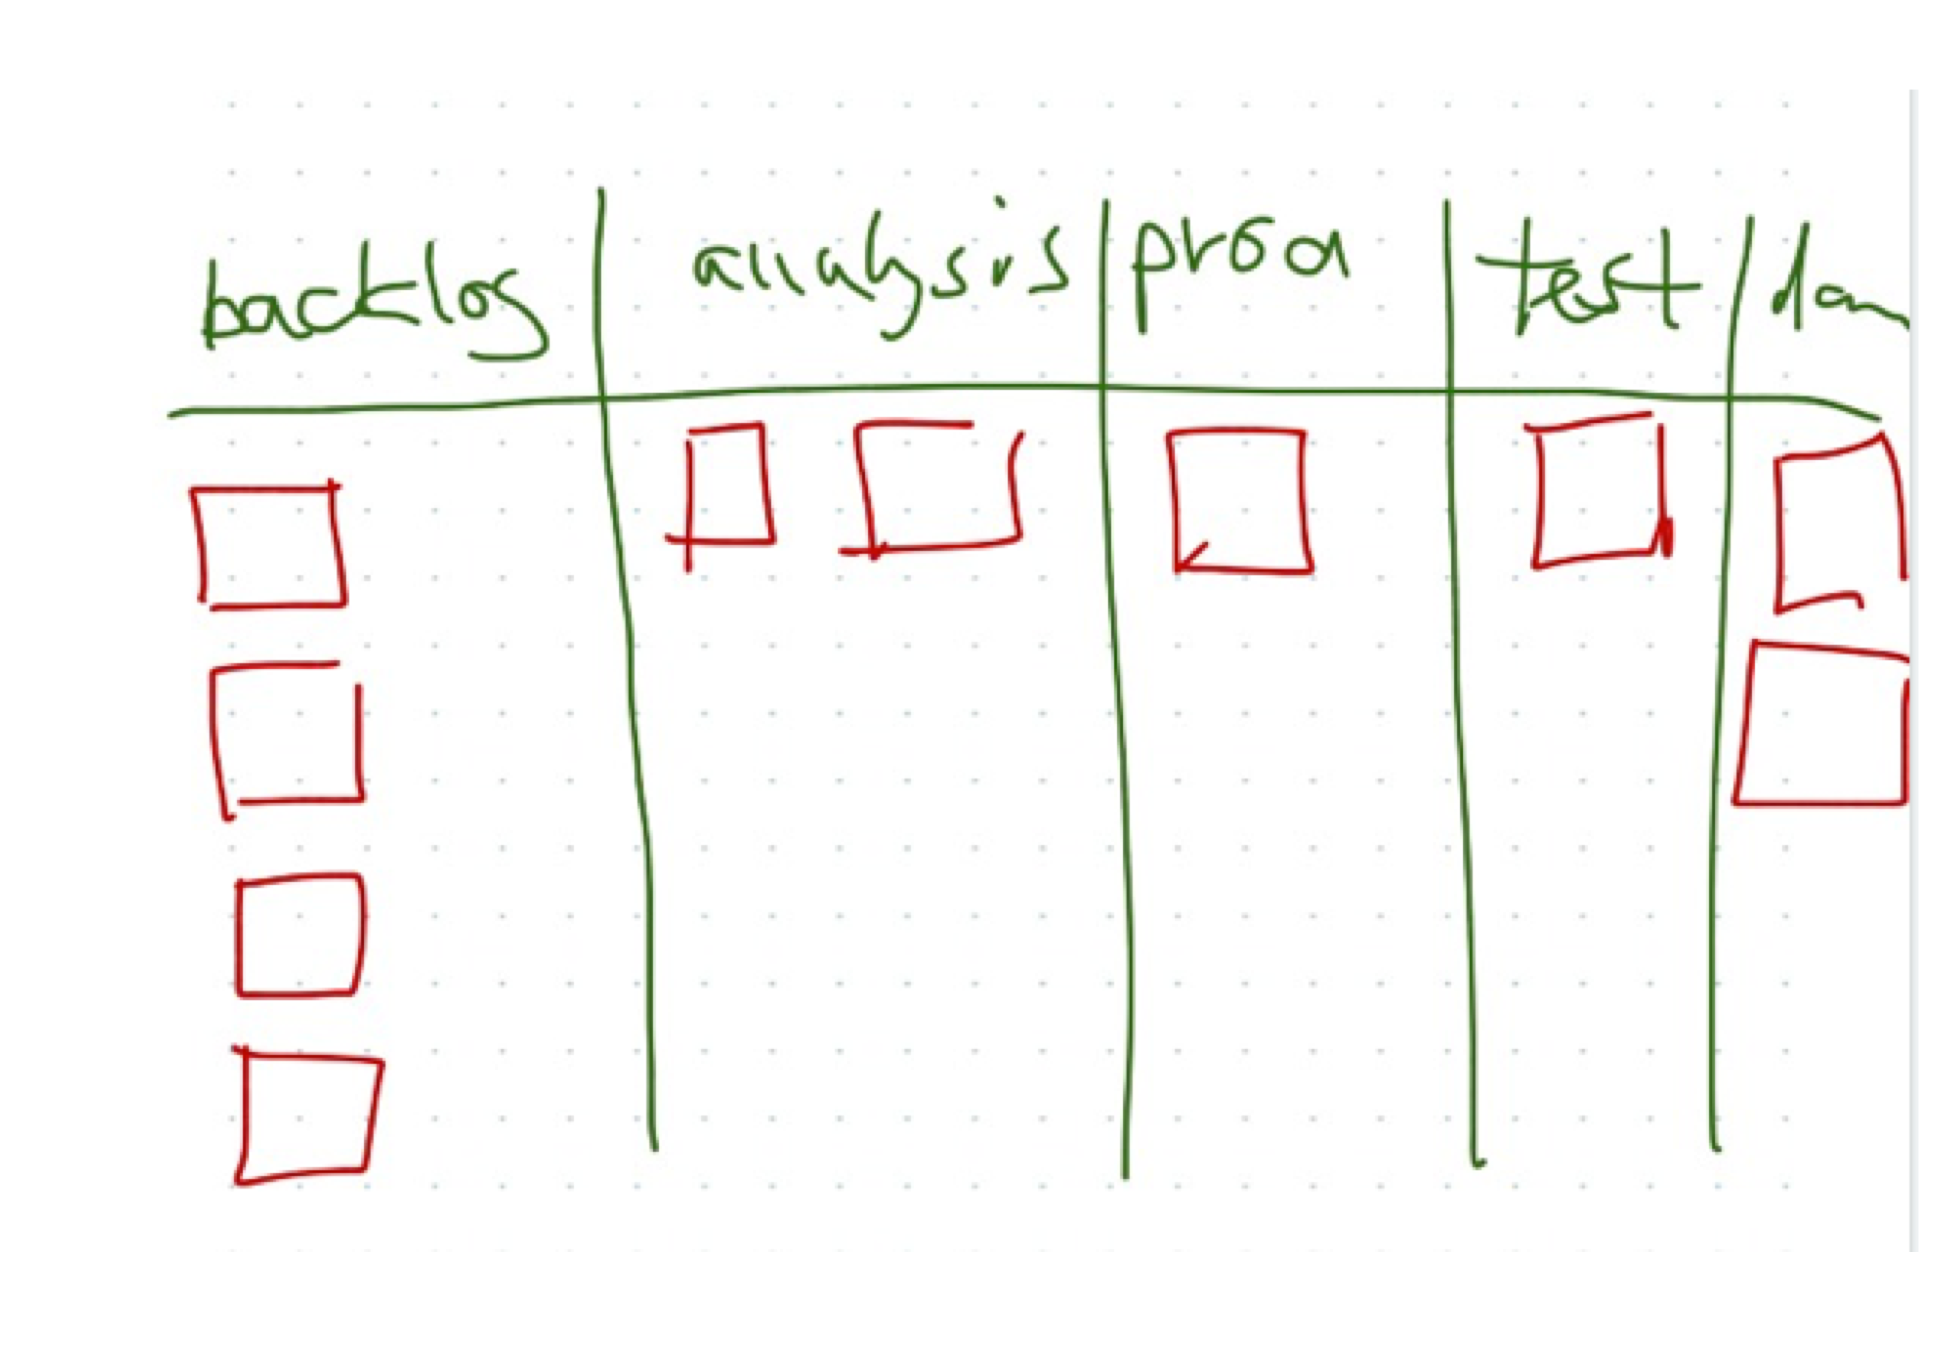 backlog analysis proa test